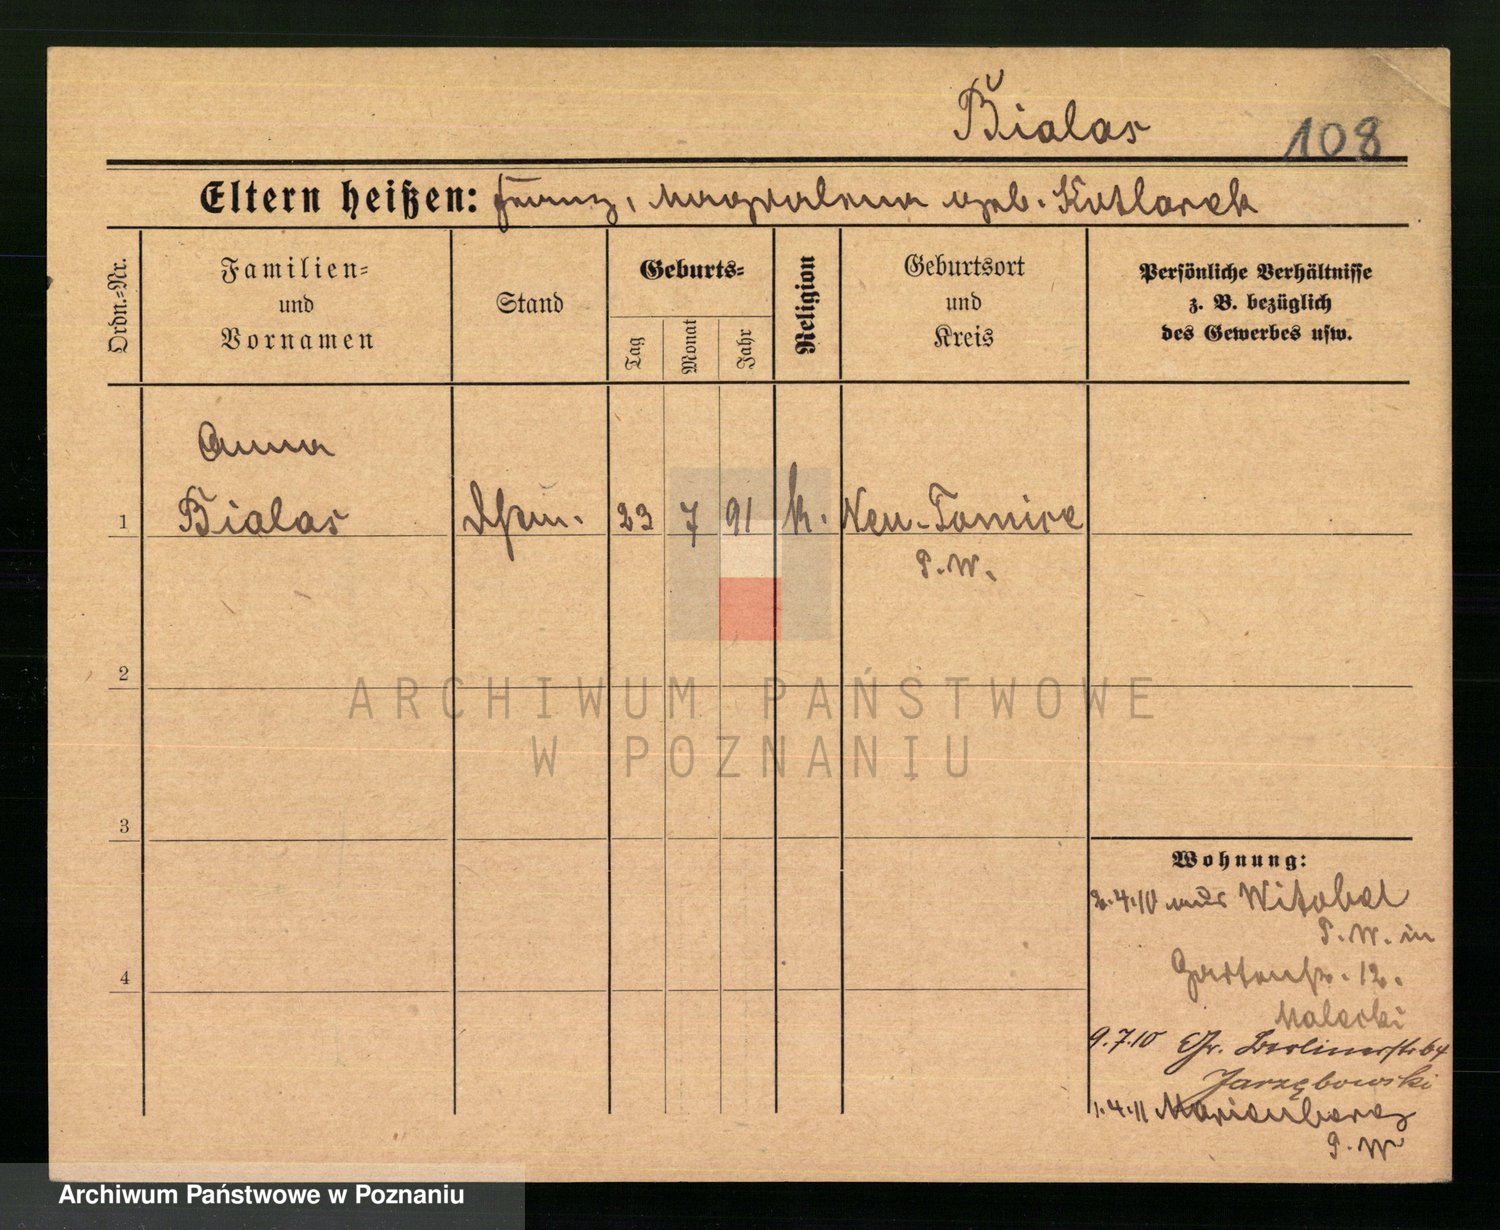 Bialas 108
Eltern heißen: Franz, Magdalena geb. Kotlarek
Ordn.-Nr.
Familien-
und
Vornamen
Stand
Geburts-
Tag
Monat
Jahr
Religion
Geburtsort
und
Kreis
Persönliche Verhältnisse
z. B. bezüglich
des Gewerbes usw.
Anna
1 Bialas 23 7 91 k. Neu-Tomice
P. W.
2
3
4
Wohnung:
2.4.10 aus Witobel
P. W. in
Gartenstr. 12.
Malecki
9.7.10 Gr. Berlinerstr 64
Jarzębowski
1.4.11 Marienberg
P. W
ARCHIWUM PAŃSTWOWE
W POZNANIU
Archiwum Państwowe w Poznaniu